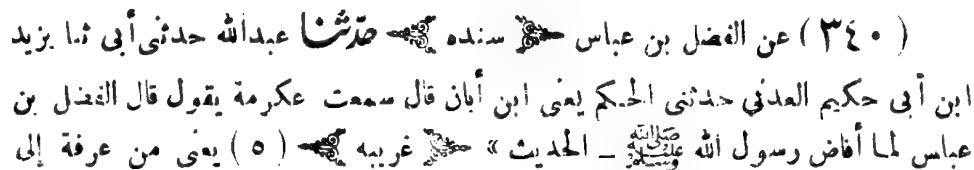 (٣٤٠) عن الفضل بن عباس ﴿ سنده ﴾ حدثنا عبدالله حدثنى أبى ثنا يزيد
ابن أبى حكيم العدني حدثنى الحكم يعنى ابن أبان قال سمعت عكرمة يقول قال الفضل بن
عباس لما أفاض رسول الله ﷺ ـ الحديث » ﴿ غريبه ﴾ (٥) يعنى من عرفة إلى